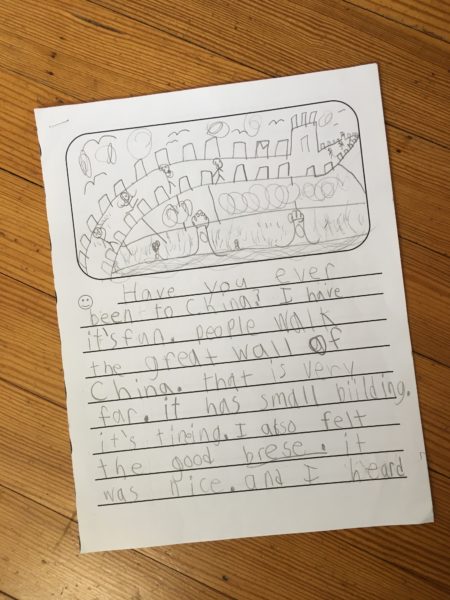 Have you ever
been to China? I have
it's fun. people walk
the great wall of
China. that is very
far. it has small biilding.
it's tirning. I also felt
the good brese. it
was nice. and I heard